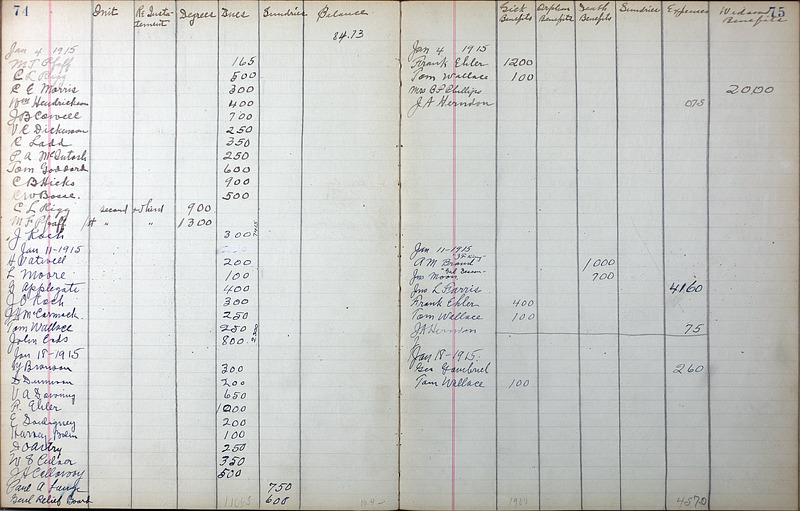 74
Init Re Insta- Degrees Dues Sundries Balance
tement
84.73
Jan 4 1915
M F Pfaff 165
C L Rigg 500
C E Morris 300
Wm Hendrickson 400
J B Cowell 700
V E Dickinson 250
C Ladd 350
P A McIntosh 250
Tom Goddard 600
C B Hicks 900
C W Bosse 500
C L Rigg second & third 900
M F Pfaff 1st " " 1300
J Koch 300
Jan 11-1915
H Vatwell 200
L Moore 100
G Applegate 400
J C Koch 300
McCormack 250
Tom Wallace 250
John Eads 800
Jan 18-1915
Bronson 300
D Dunivan 200
V A Downing 650
F. Ehler 1000
E Doudigney 200
Harvey 100
250
W F Culver 350
Calloway 500
Paul A Lange 750
Genl Relief Board 600
75
Sick Benefits Orphan Benefits Death Benefits Sundries Expenses Widows Benefits
Jan 4 1915
Frank Ehler 1200
Tom Wallace 100
Mrs C F Phillips 2000
J A Herndon 075
Jan 11-1915
A M Brand 1000
Jno Moore 700
Jno L Farris 4160
Frank Ehler 400
Tom Wallace 100
J A Herndon 75
Jan 18-1915.
Geo Gambriel 260
Tom Wallace 100
4570